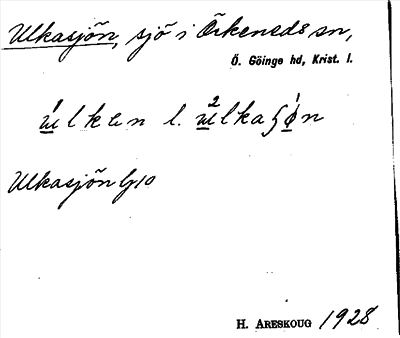 Ulkasjön, sjö i Örkeneds sn,
Ö. Göinge hd, Krist. l.
ulken l. ulkaʃøn
Ulkasjön G10
H. ARESKOUG 1928